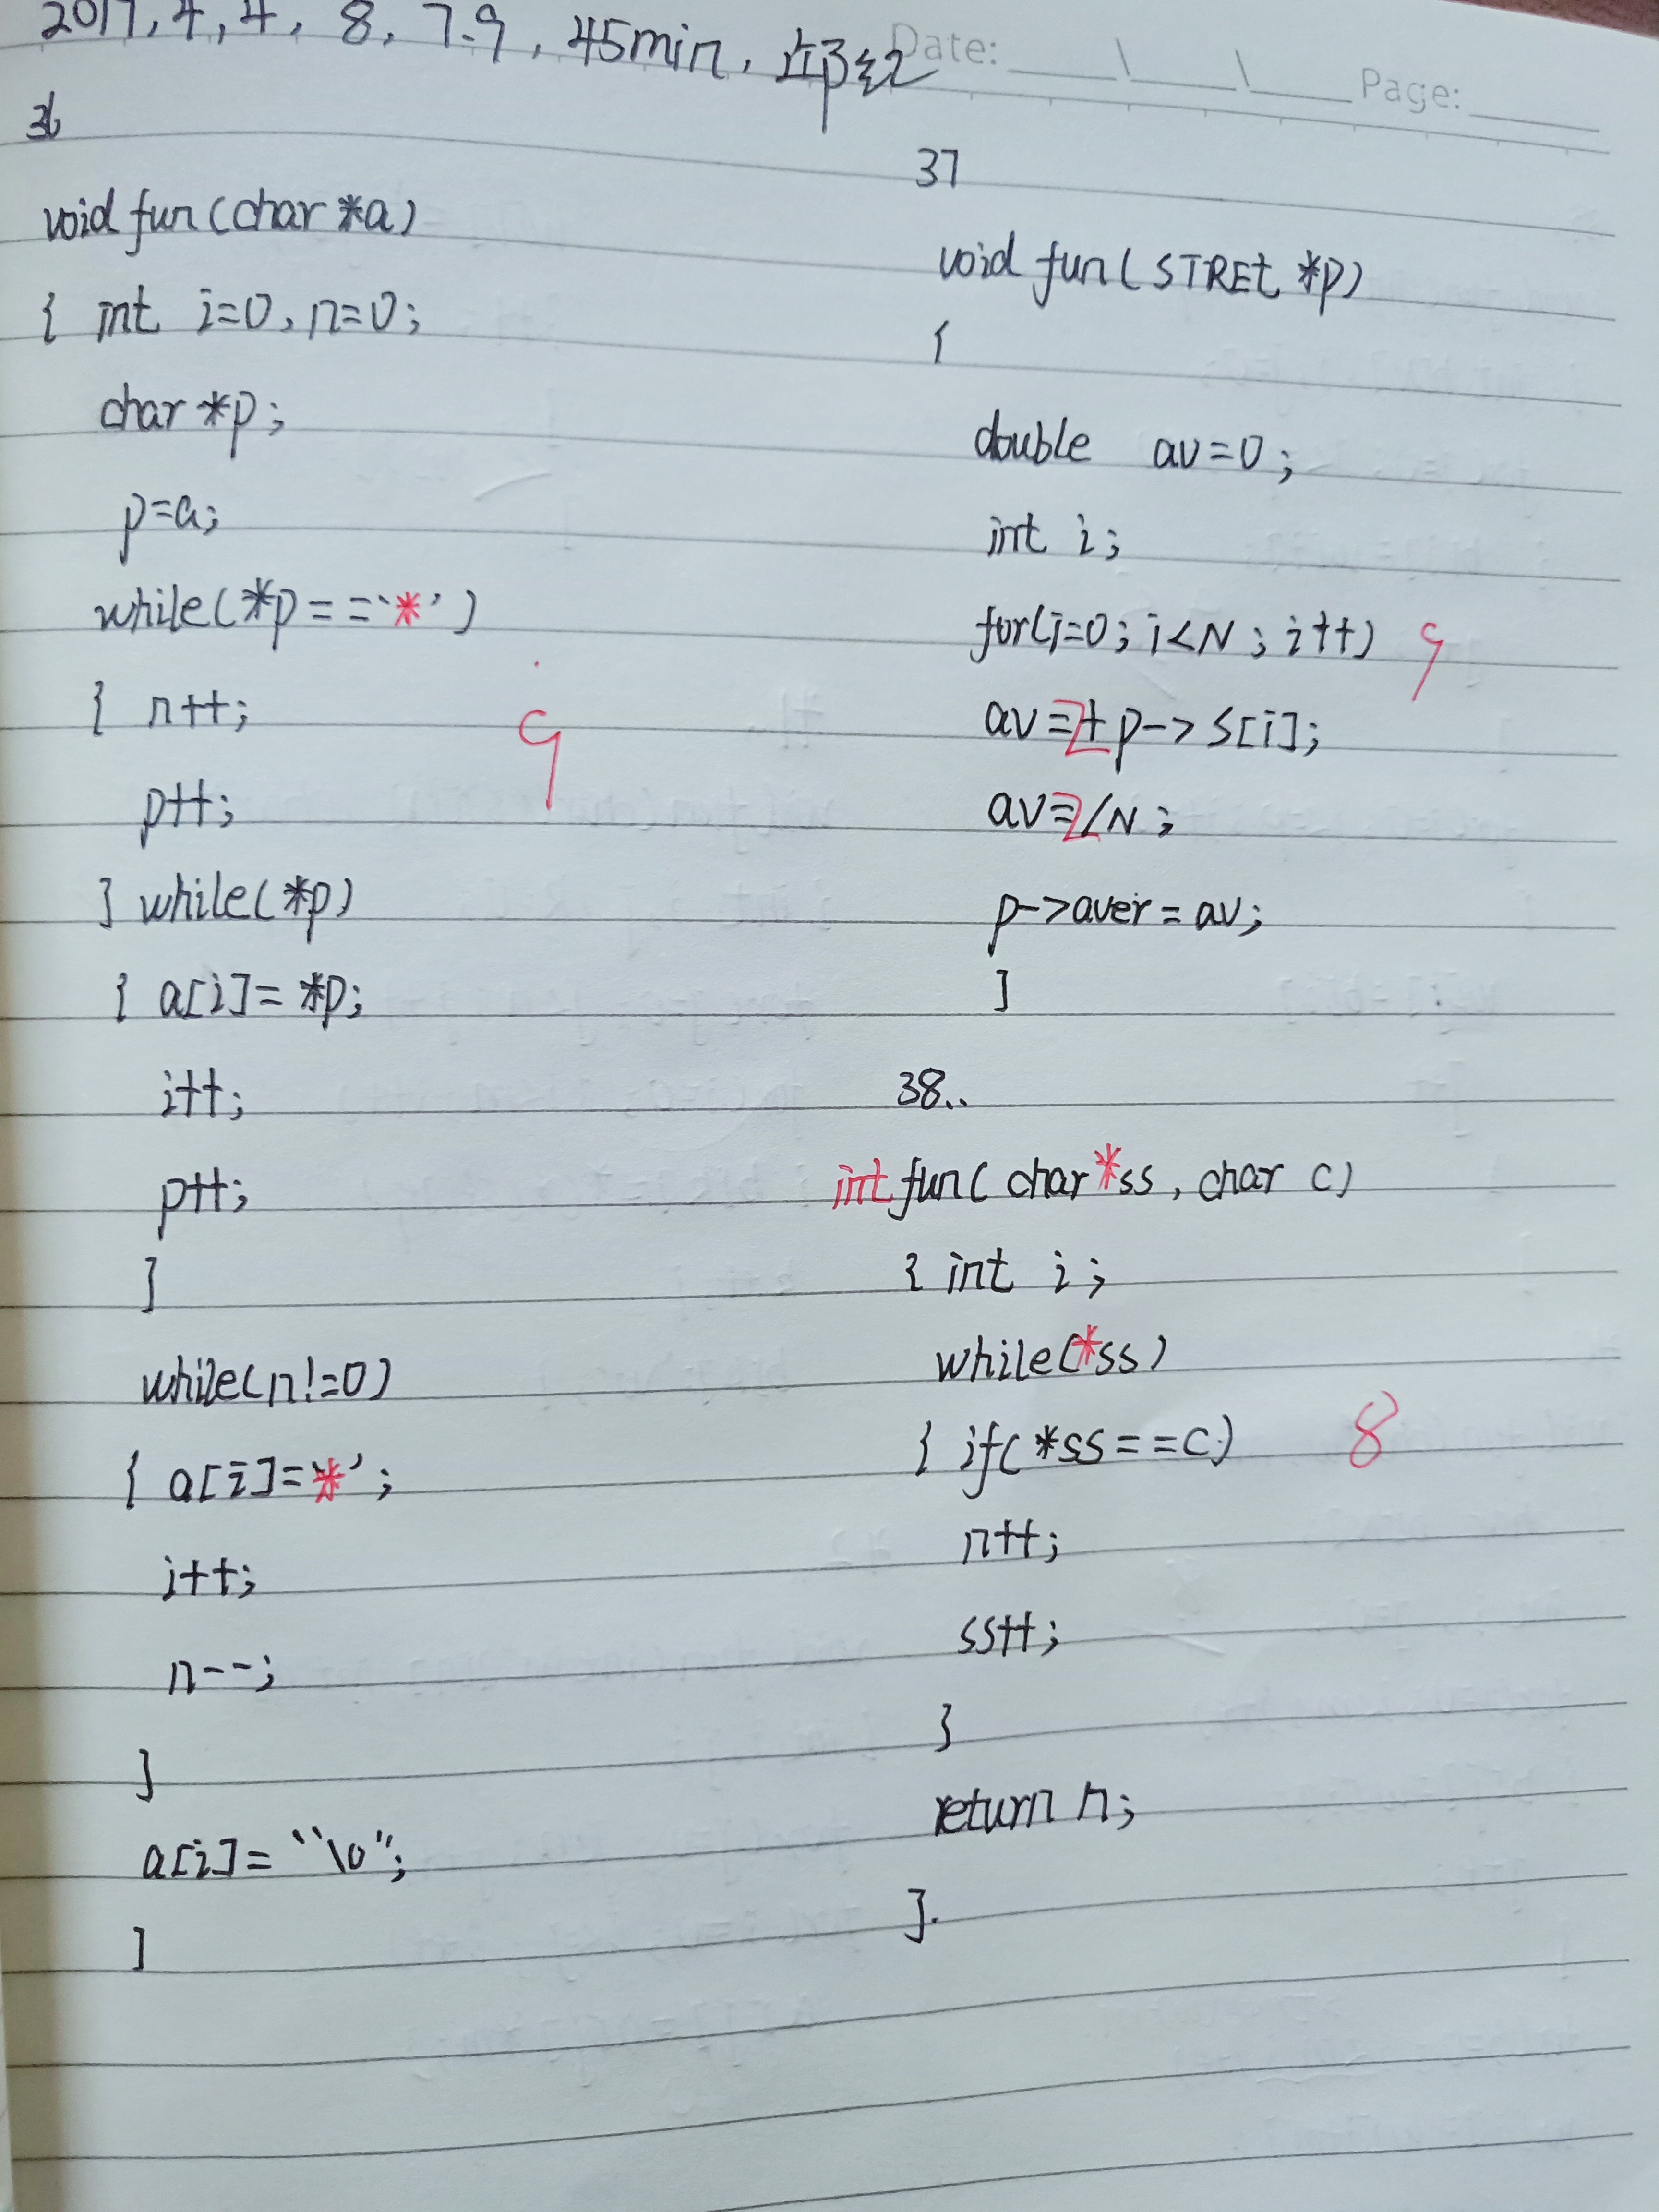 2017, 4, 4, 8, 7.9, 45min,
Date: ____\____\____ Page: ____
36
void fun(char *a)
{ int i=0, n=0;
char *p;
p=a;
while(*p=='*')
{ n++;
9
p++;
} while(*p)
{ a[i]=*p;
i++;
p++;
}
while(n!=0)
{ a[i]='*';
i++;
n--;
}
a[i]="\0";
}
37
void fun(STREt *p)
{
double av=0;
int i;
for(i=0; i<N; i++) 9
av=+p->s[i];
av=/N;
p->aver=av;
}
38..
int fun( char *ss, char c)
{ int i;
while(*ss)
{ if(*ss==c) 8
n++;
ss++;
}
return n;
}.